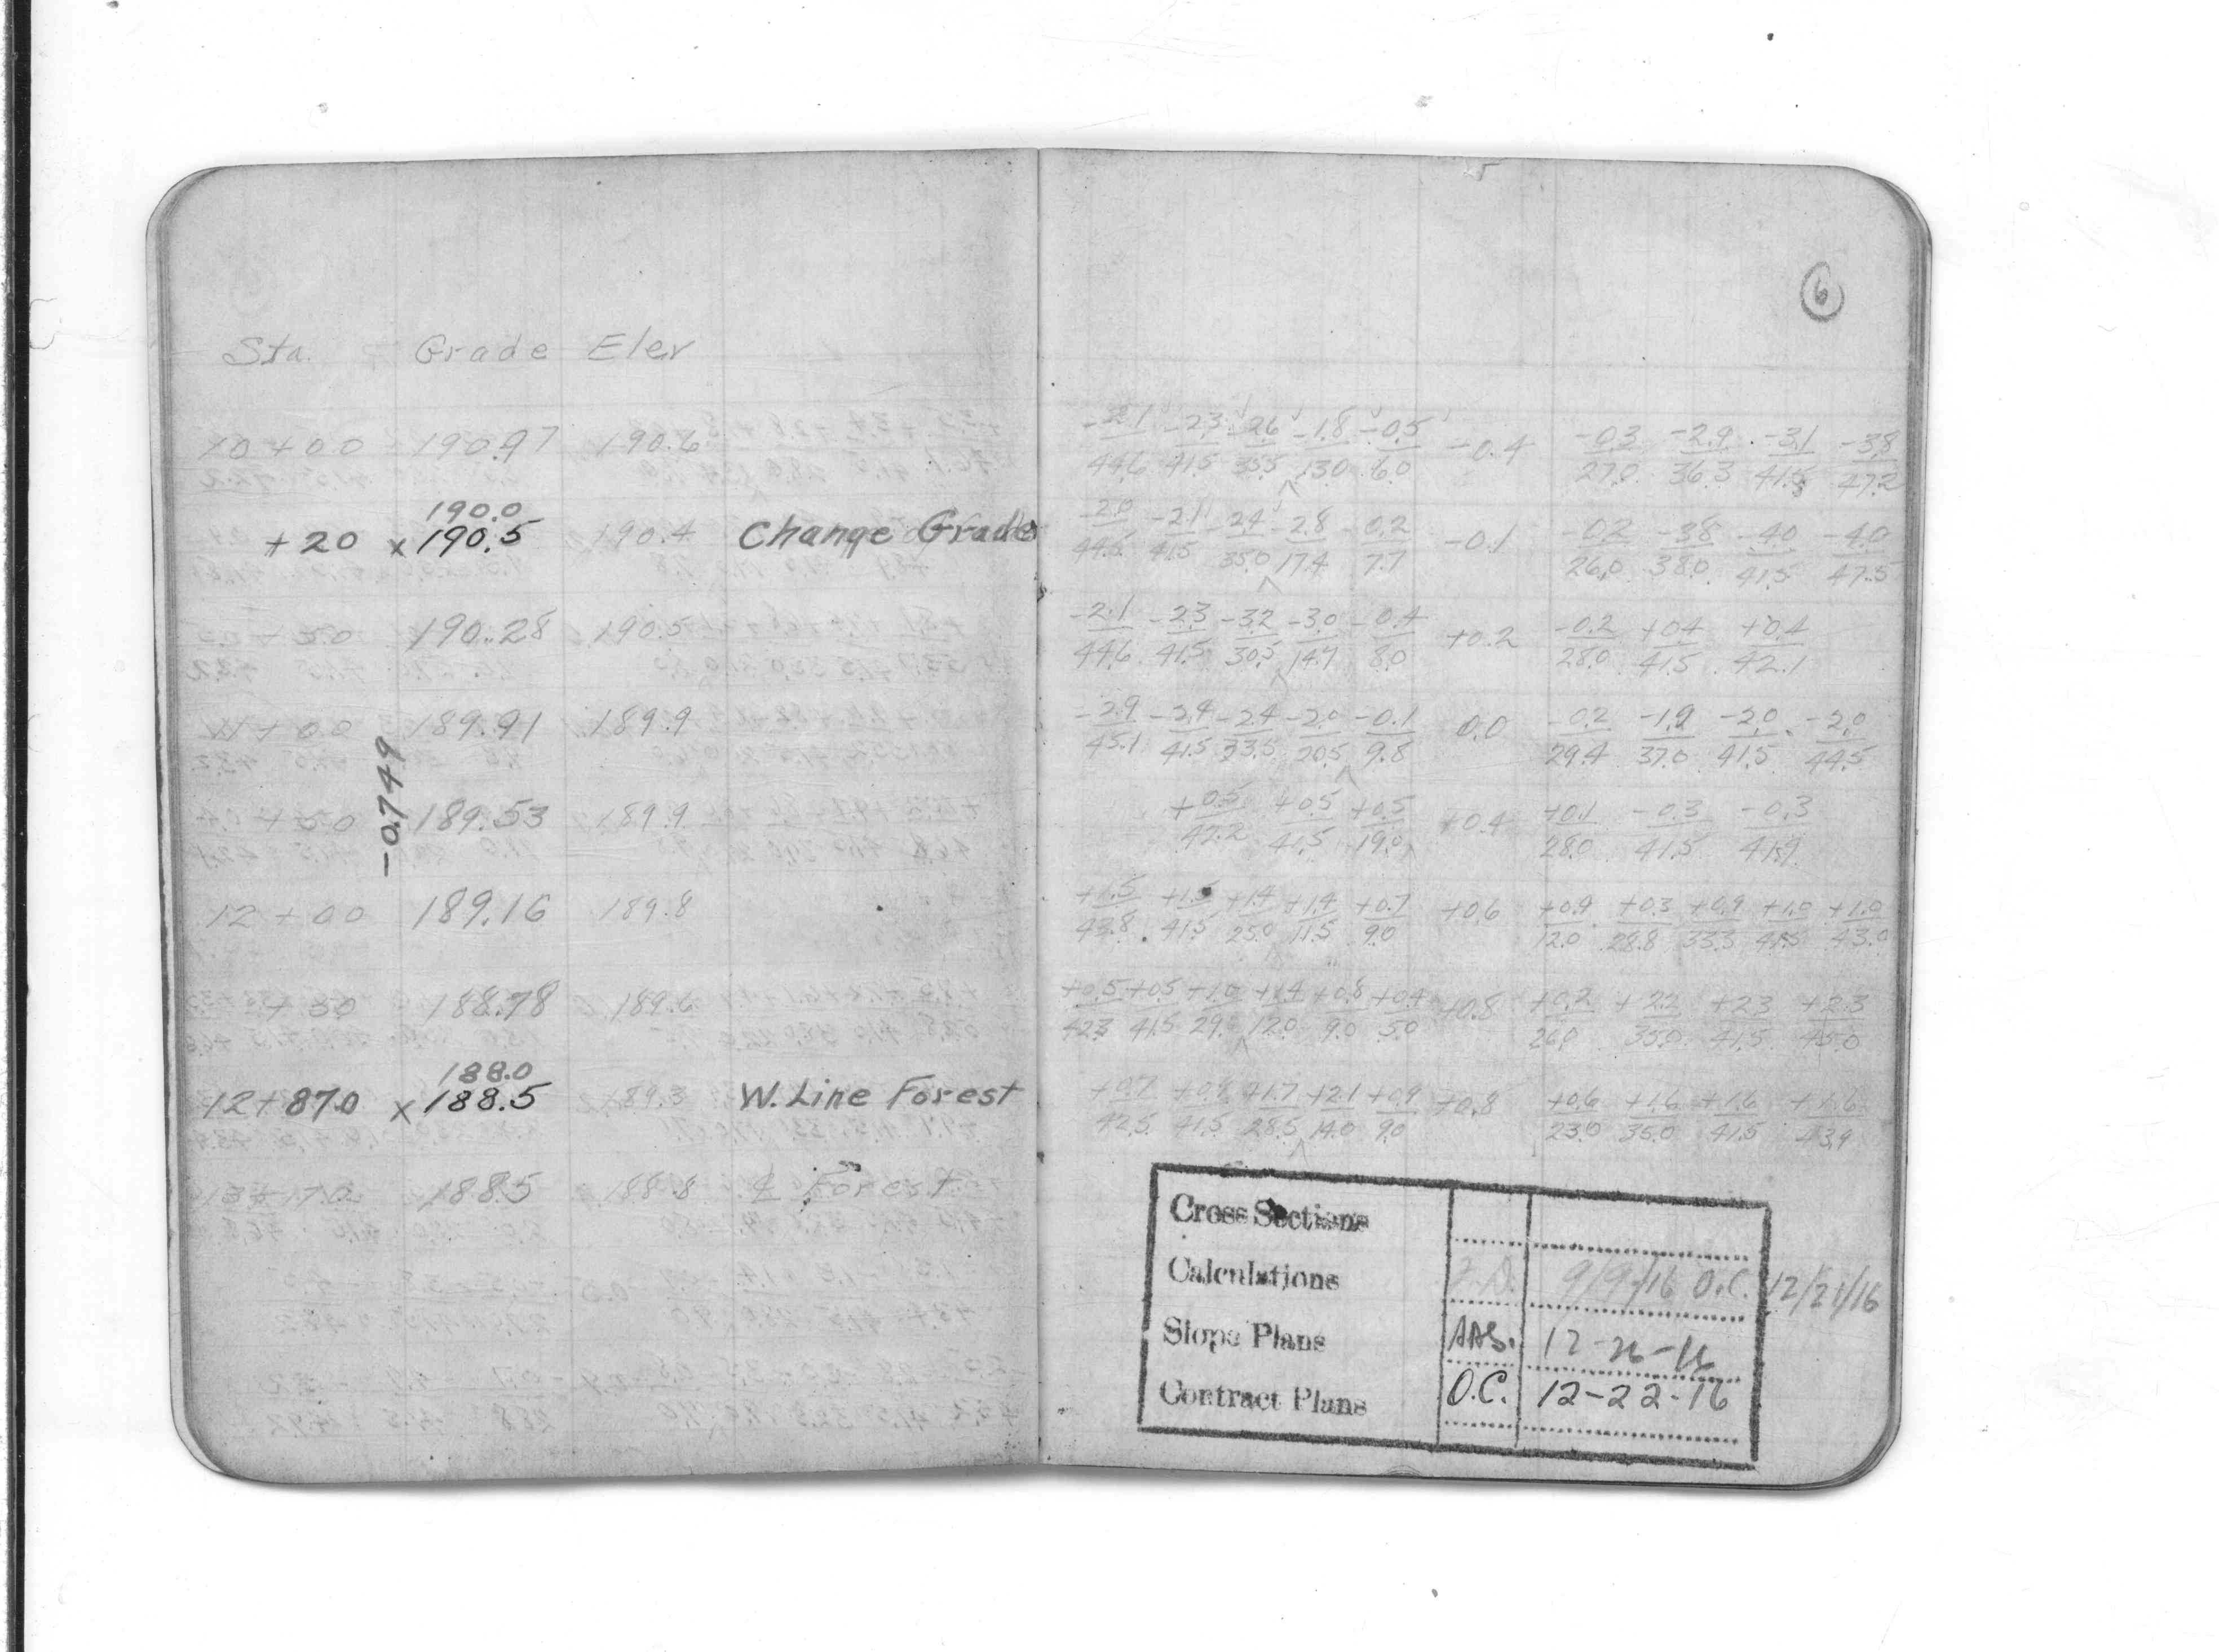 6
Sta. Grade Elev
10+00 190.97 190.6
190.0
+20 x 190.5 190.4 Change Grade
+50 190.28 190.5
11+00 189.91 189.9
-0.749
+50 189.53 189.9
12+00 189.16 189.8
+50 188.78 189.6
188.0
12+87.0 x 188.5 189.3 W. Line Forest
13+17.0 188.5 188.8 ℄ Forest
-2.1 -2.3 -2.6 -1.8 -0.5 -0.4 -0.3 -2.9 -3.1 -3.8
44.6 41.5 35.5 13.0 6.0 27.0 36.3 41.5 47.2
-2.0 -2.1 -2.4 -2.8 -0.2 -0.1 -0.2 -3.8 -4.0 -4.0
44.5 41.5 35.0 17.4 7.7 26.0 38.0 41.5 47.5
-2.1 -2.3 -3.2 -3.0 -0.4 +0.2 -0.2 +0.4 +0.4
44.6 41.5 30.5 14.7 8.0 28.0 41.5 42.1
-2.9 -2.4 -2.4 -2.0 -0.1 0.0 -0.2 -1.9 -2.0 -2.0
45.1 41.5 33.5 20.5 9.8 29.4 37.0 41.5 44.5
+0.5 +0.5 +0.5 +0.4 +0.1 -0.3 -0.3
42.2 41.5 19.0 28.0 41.5 41.9
+1.5 +1.5 +1.4 +1.4 +0.7 +0.6 +0.9 +0.3 +0.9 +1.0 +1.0
43.8 41.5 25.0 11.5 9.0 12.0 28.8 33.3 41.5 43.0
+0.5 +0.5 +1.0 +1.4 +0.8 +0.4 +0.8 +0.2 +2.2 +2.3 +2.3
42.3 41.5 29. 12.0 9.0 5.0 26.0 35.0 41.5 45.0
+0.7 +0.8 +1.7 +2.1 +0.9 +0.8 +0.6 +1.6 +1.6 +1.6
42.5 41.5 28.5 14.0 9.0 23.0 35.0 41.5 43.9
Cross Sections
Calculations 9/9/16 O.C. 12/21/16
Slope Plans
Contract Plans O.C. 12-22-16